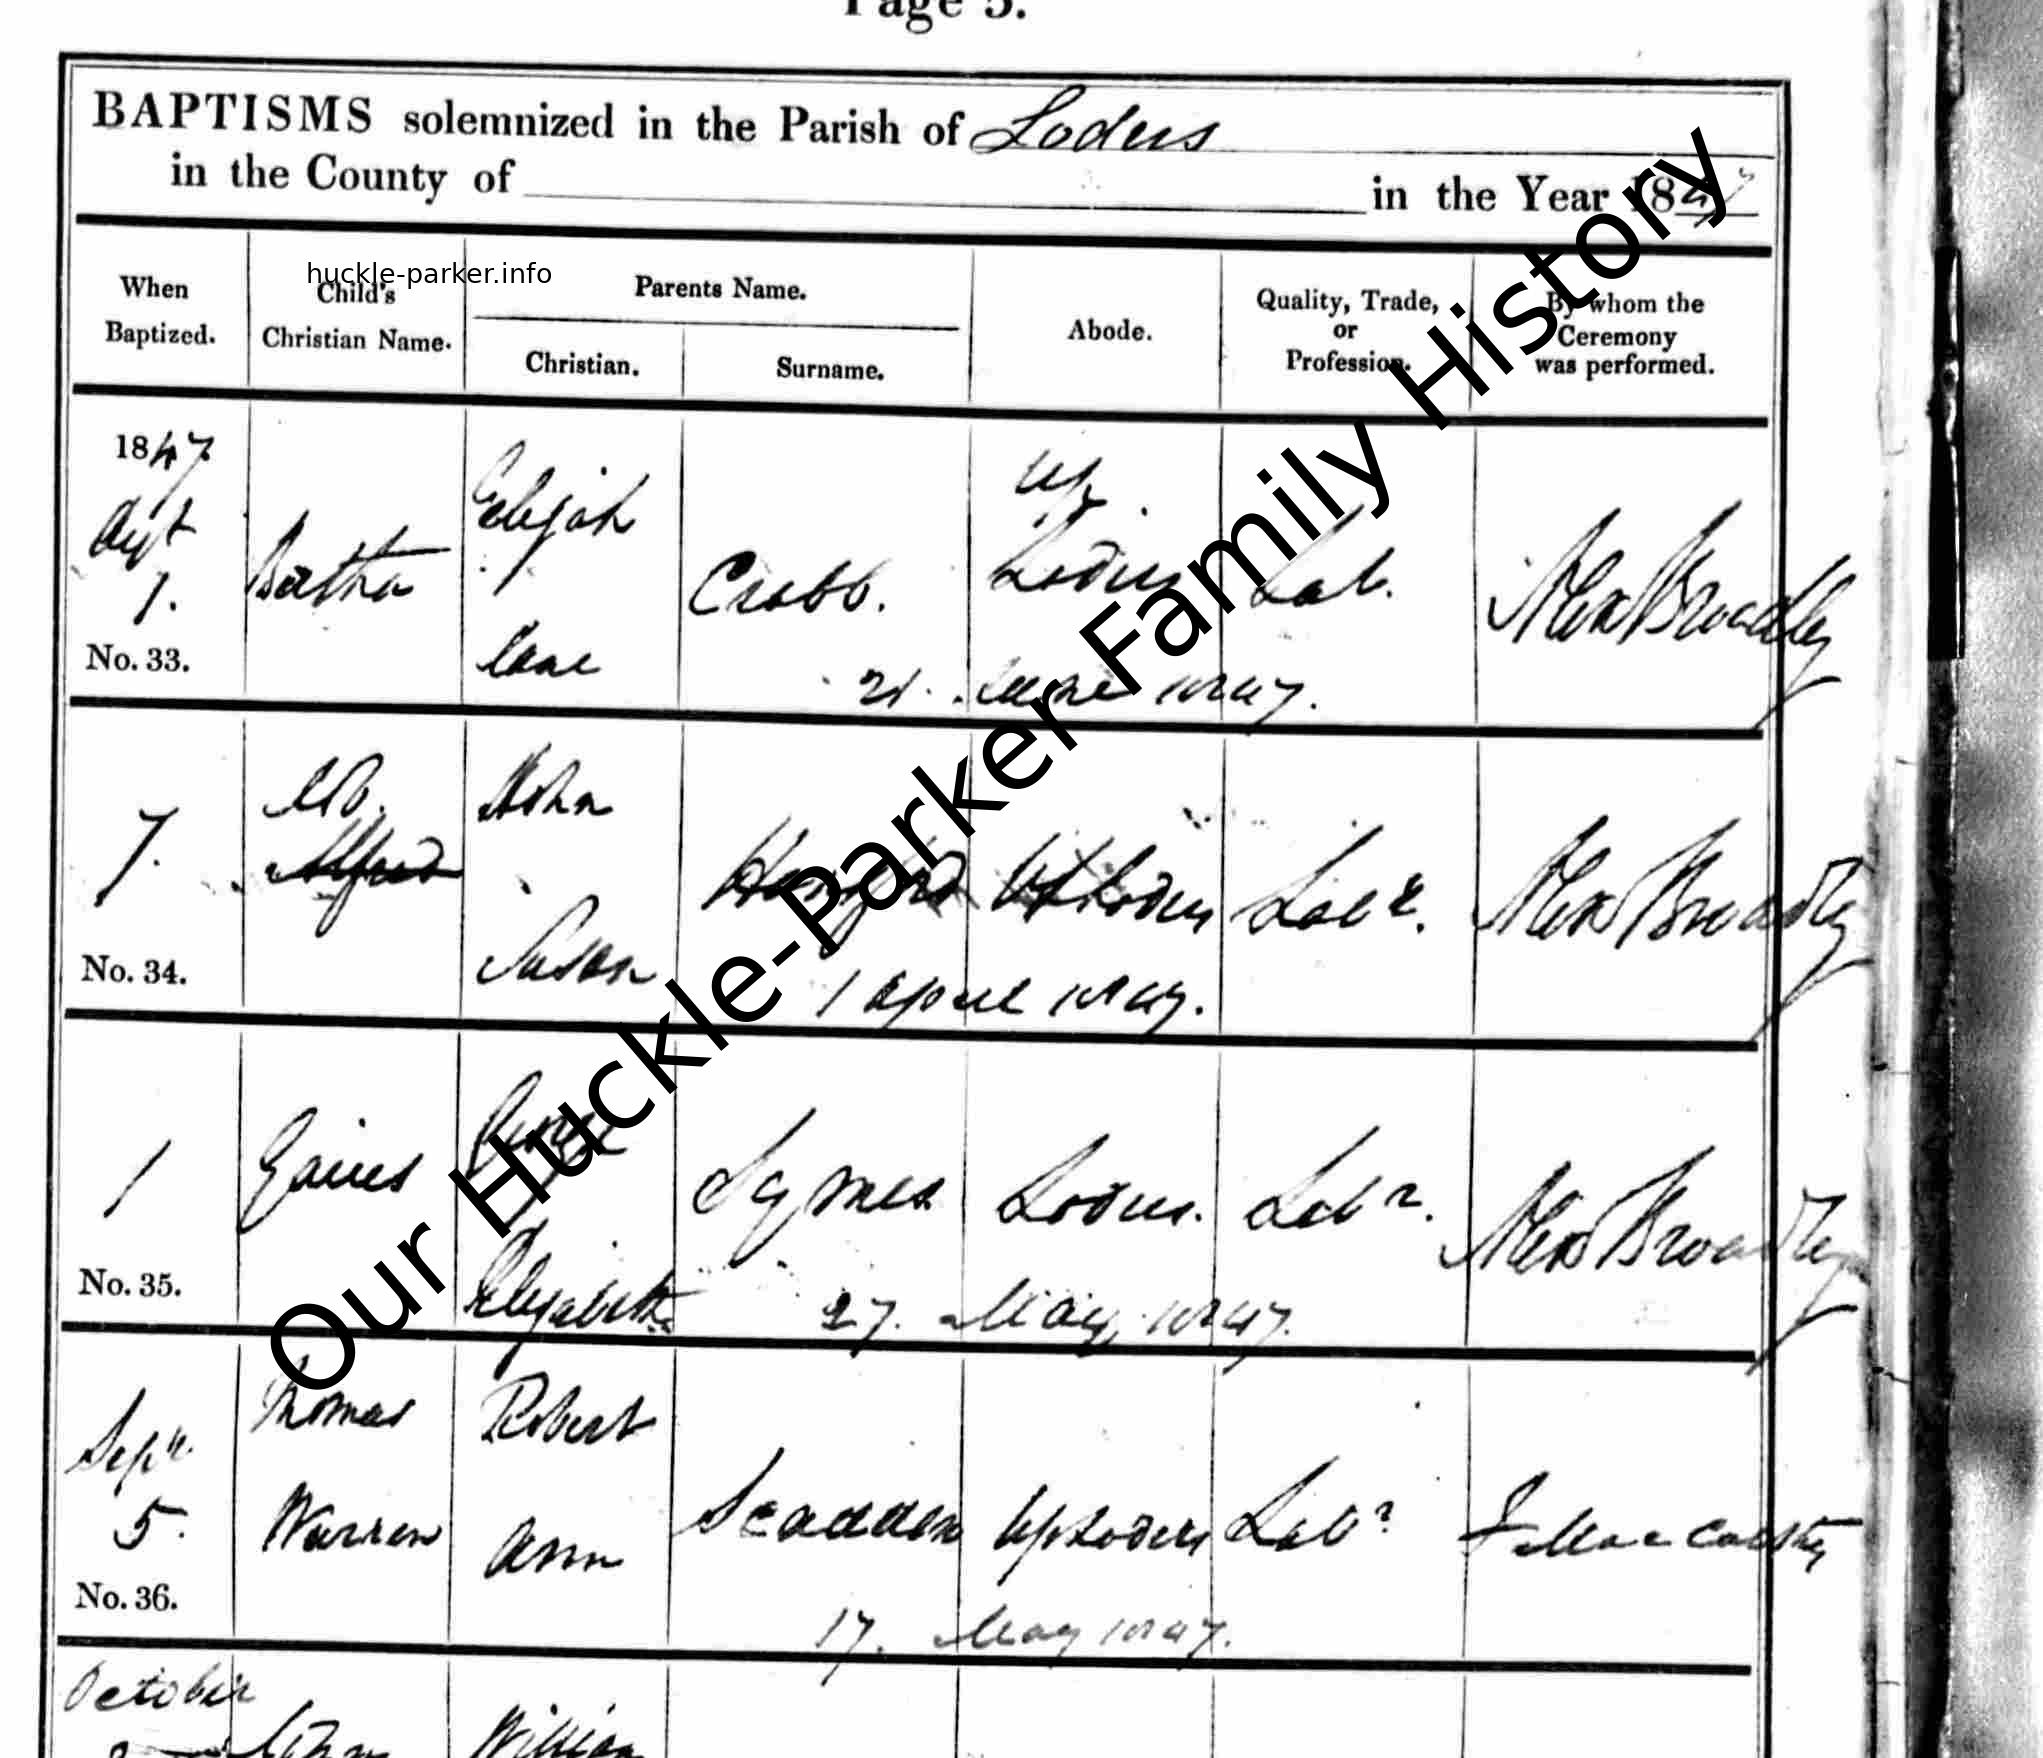 Page 5.
BAPTISMS solemnized in the Parish of Loders
in the County of in the Year 1847
huckle-parker.info
When Baptized.
Child's Christian Name.
Parents Name.
Christian.
Surname.
Abode.
Quality, Trade, or Profession.
By whom the Ceremony was performed.
1847
Augt
1.
No. 33.
Bertha
Elijah
Jane
Crabb.
Up
Loders
Lab.
Alex Broadley
21. June 1847.
7.
No. 34.
Alfred
John
Susan
Uploders
Labr.
Alex Broadley
1 April 1847.
1
No. 35.
George
Elizabeth
Symes
Loders.
Labr.
Alex Broadley
27. May 1847.
Sepr
5.
No. 36.
Thomas
Warren
Robert
Ann
Scadden
Uploders
Labr
17. May 1847.
October
William
Our Huckle-Parker Family History